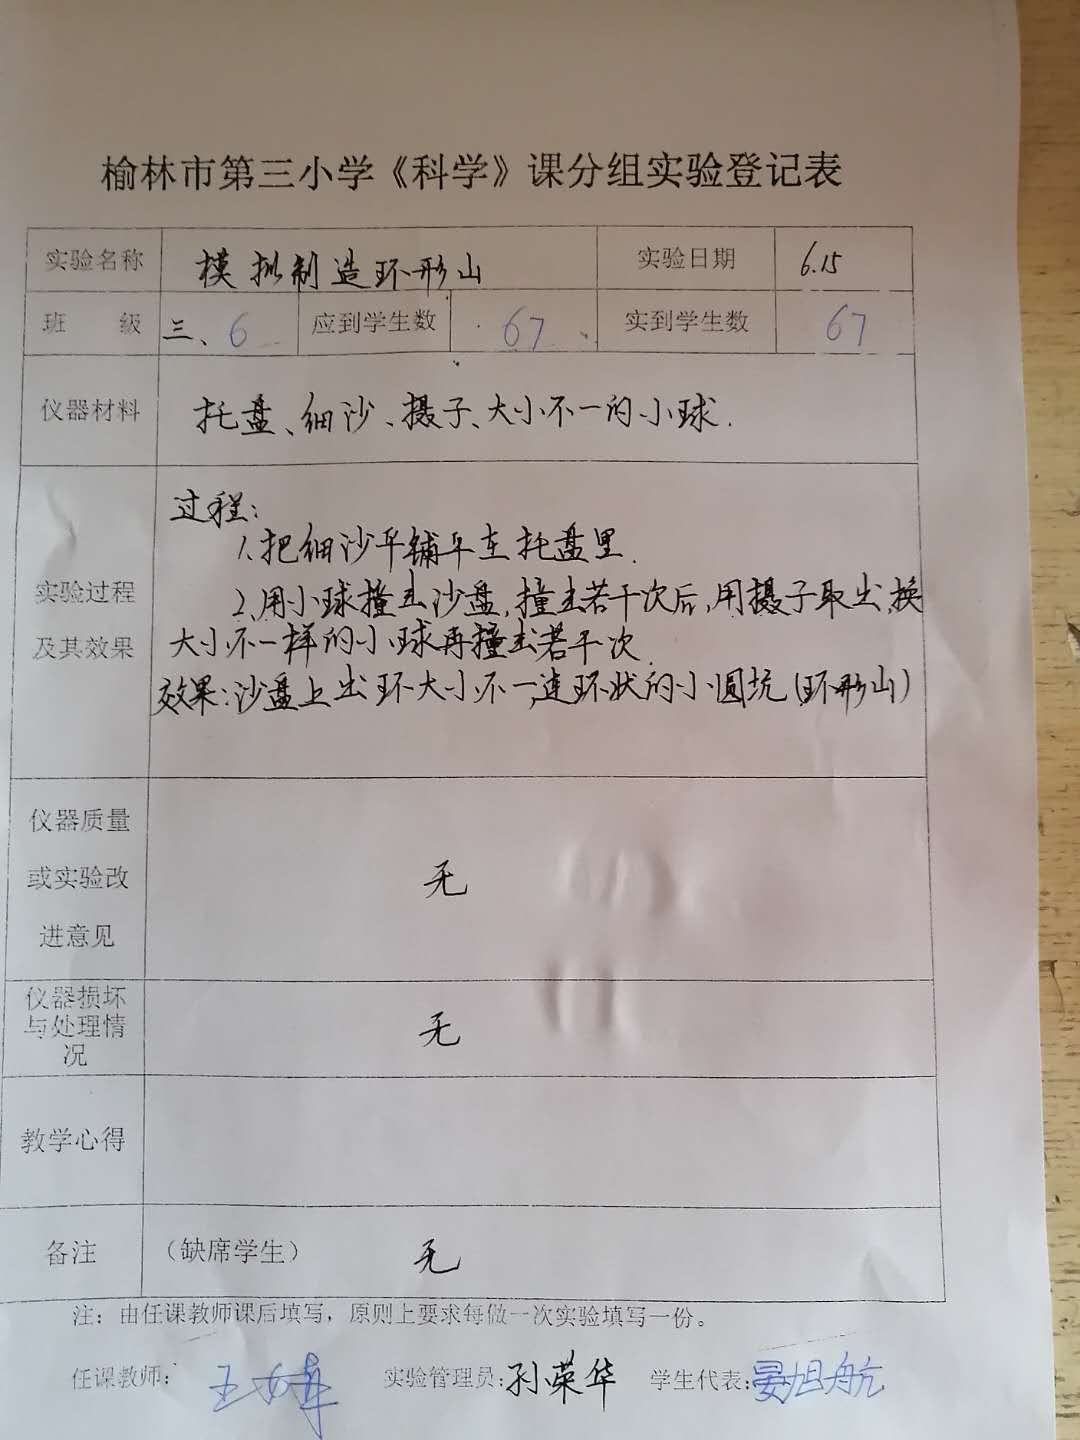 榆林市第三小学《科学》课分组实验登记表
实验名称 模拟制造环形山 实验日期 6.15
班 级 三、6 应到学生数 67 实到学生数 67
仪器材料 托盘、细沙、摄子、大小不一的小球.
过程:
1.把细沙平铺平在托盘里.
实验过程
2.用小球撞击沙盘,撞击若干次后,用摄子取出,换
及其效果
大小不一样的小球再撞击若干次.
效果:沙盘上出环大小不一,连环状的小圆坑(环形山)
仪器质量
或实验改
进意见
无
仪器损坏
与处理情
况
无
教学心得
备注 (缺席学生) 无
注:由任课教师课后填写,原则上要求每做一次实验填写一份。
任课教师: 王 实验管理员:孙荣华 学生代表:晏旭航